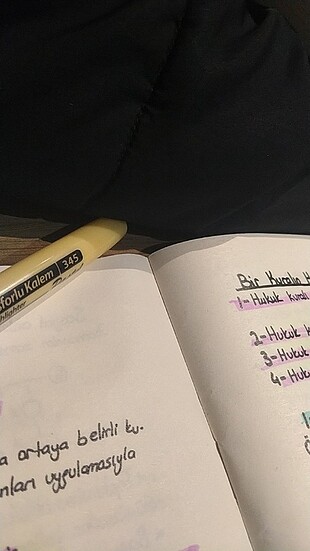 forlu Kalem 345
hlighter
a ortaya belirli ku.
nları uygulamasıyla
Bir Kuralın H
1- Hukuk kurali
2- Hukuk k
3- Hukuk
4- Hukuk